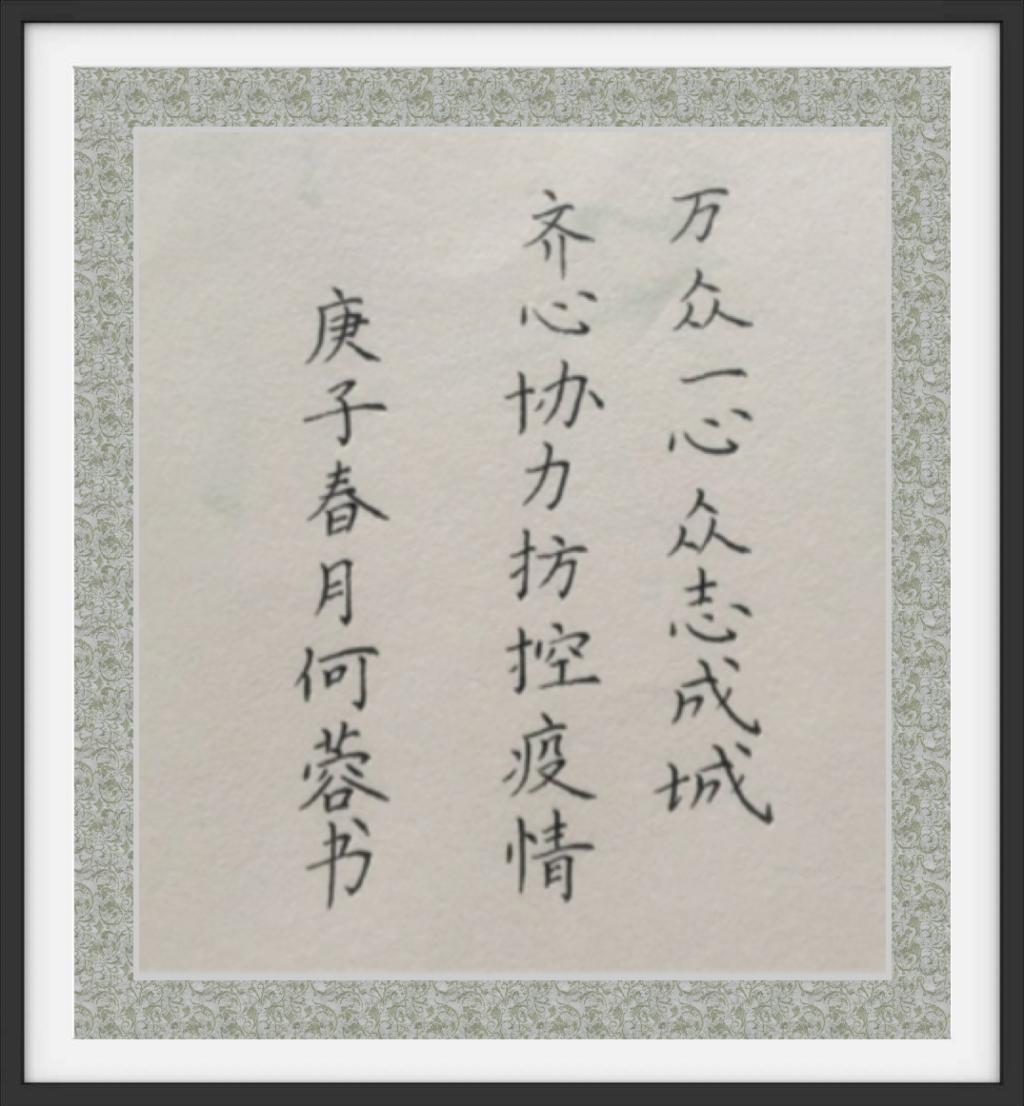 万众一心众志成城
齐心协力抗控疫情
庚子春月何蓉书